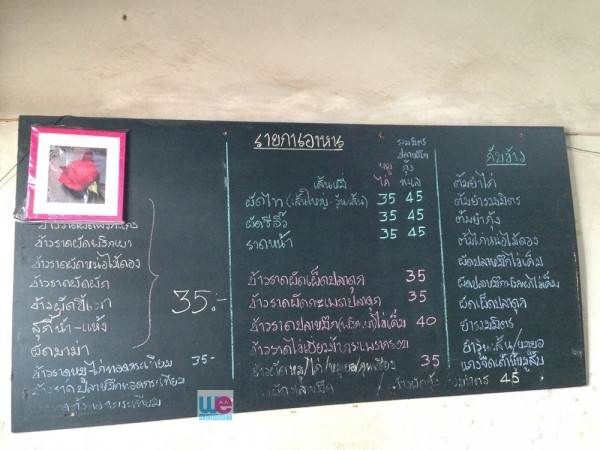 ข้าวราดผัดพริกแกง
ข้าวราดผัดพริกเผา
ข้าวราดผัดหน่อไม้ดอง
ข้าวราดผัดผัก
ข้าวผัดขี้เมา
สุกี้น้ำ-แห้ง
ผัดมาม่า
35.-
ข้าวราดหมู/ไก่ทอดกระเทียม 35-
ข้าวราดปลาหมึกทอดกระเทียม
รายการอาหาร
หมู
ไก่
รวมมิตร
ปลาหมึก
กุ้ง
ทะเล
เส้นหมี่
ผัดไท (เส้นใหญ่-วุ้นเส้น) 35 45
ผัดซีอิ๊ว 35 45
ราดหน้า 35 45
ข้าวราดผัดเผ็ดปลาดุก 35
ข้าวราดผัดกะเพราปลาดุก 35
ข้าวราดปลาหมึกผัดไข่เค็ม 40
ข้าวราดไข่เยี่ยวม้ากระเพรากรอบ
ข้าวผัดหมู/ไก่/แหนม/กุนเชียง 35
45
กับข้าว
ต้มยำไก่
ต้มยำรวมมิตร
ต้มยำกุ้ง
ต้มไก่หน่อไม้ดอง
ผัดปลาหมึกไข่เค็ม
ผัดเผ็ดปลาดุก
ยำรวมมิตร
ยำวุ้นเส้น/หมูยอ
แกงจืดเต้าหู้หมูสับ
we